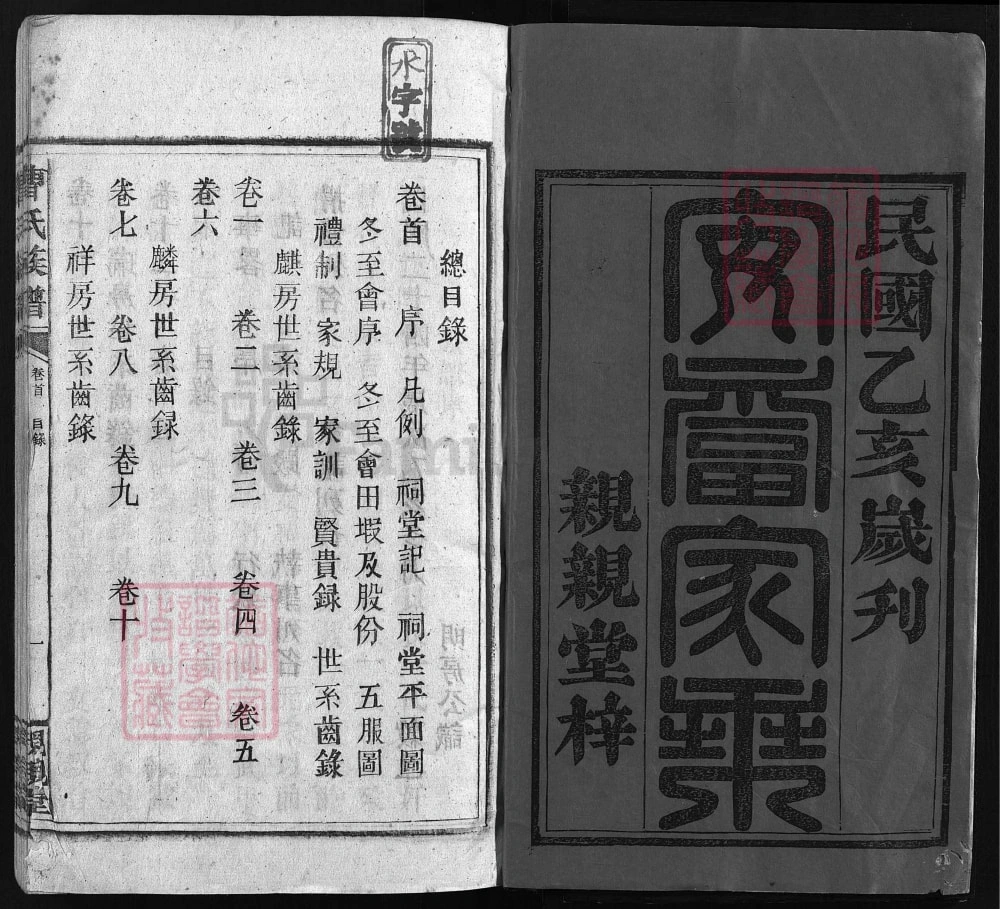 民國乙亥歲刊
安曹家乘
親親堂梓
水字號
總目錄
卷首 序 凡例 祠堂記 祠堂平面圖
冬至會序 冬至會田塅及股份 五服圖
禮制 家規 家訓 賢貴録 世系齒錄
麒房世系齒錄
卷一 卷二 卷三 卷四 卷五
卷六
麟房世系齒録
卷七 卷八 卷九 卷十
祥房世系齒錄
曹氏族譜 卷首 目錄 一 親親堂